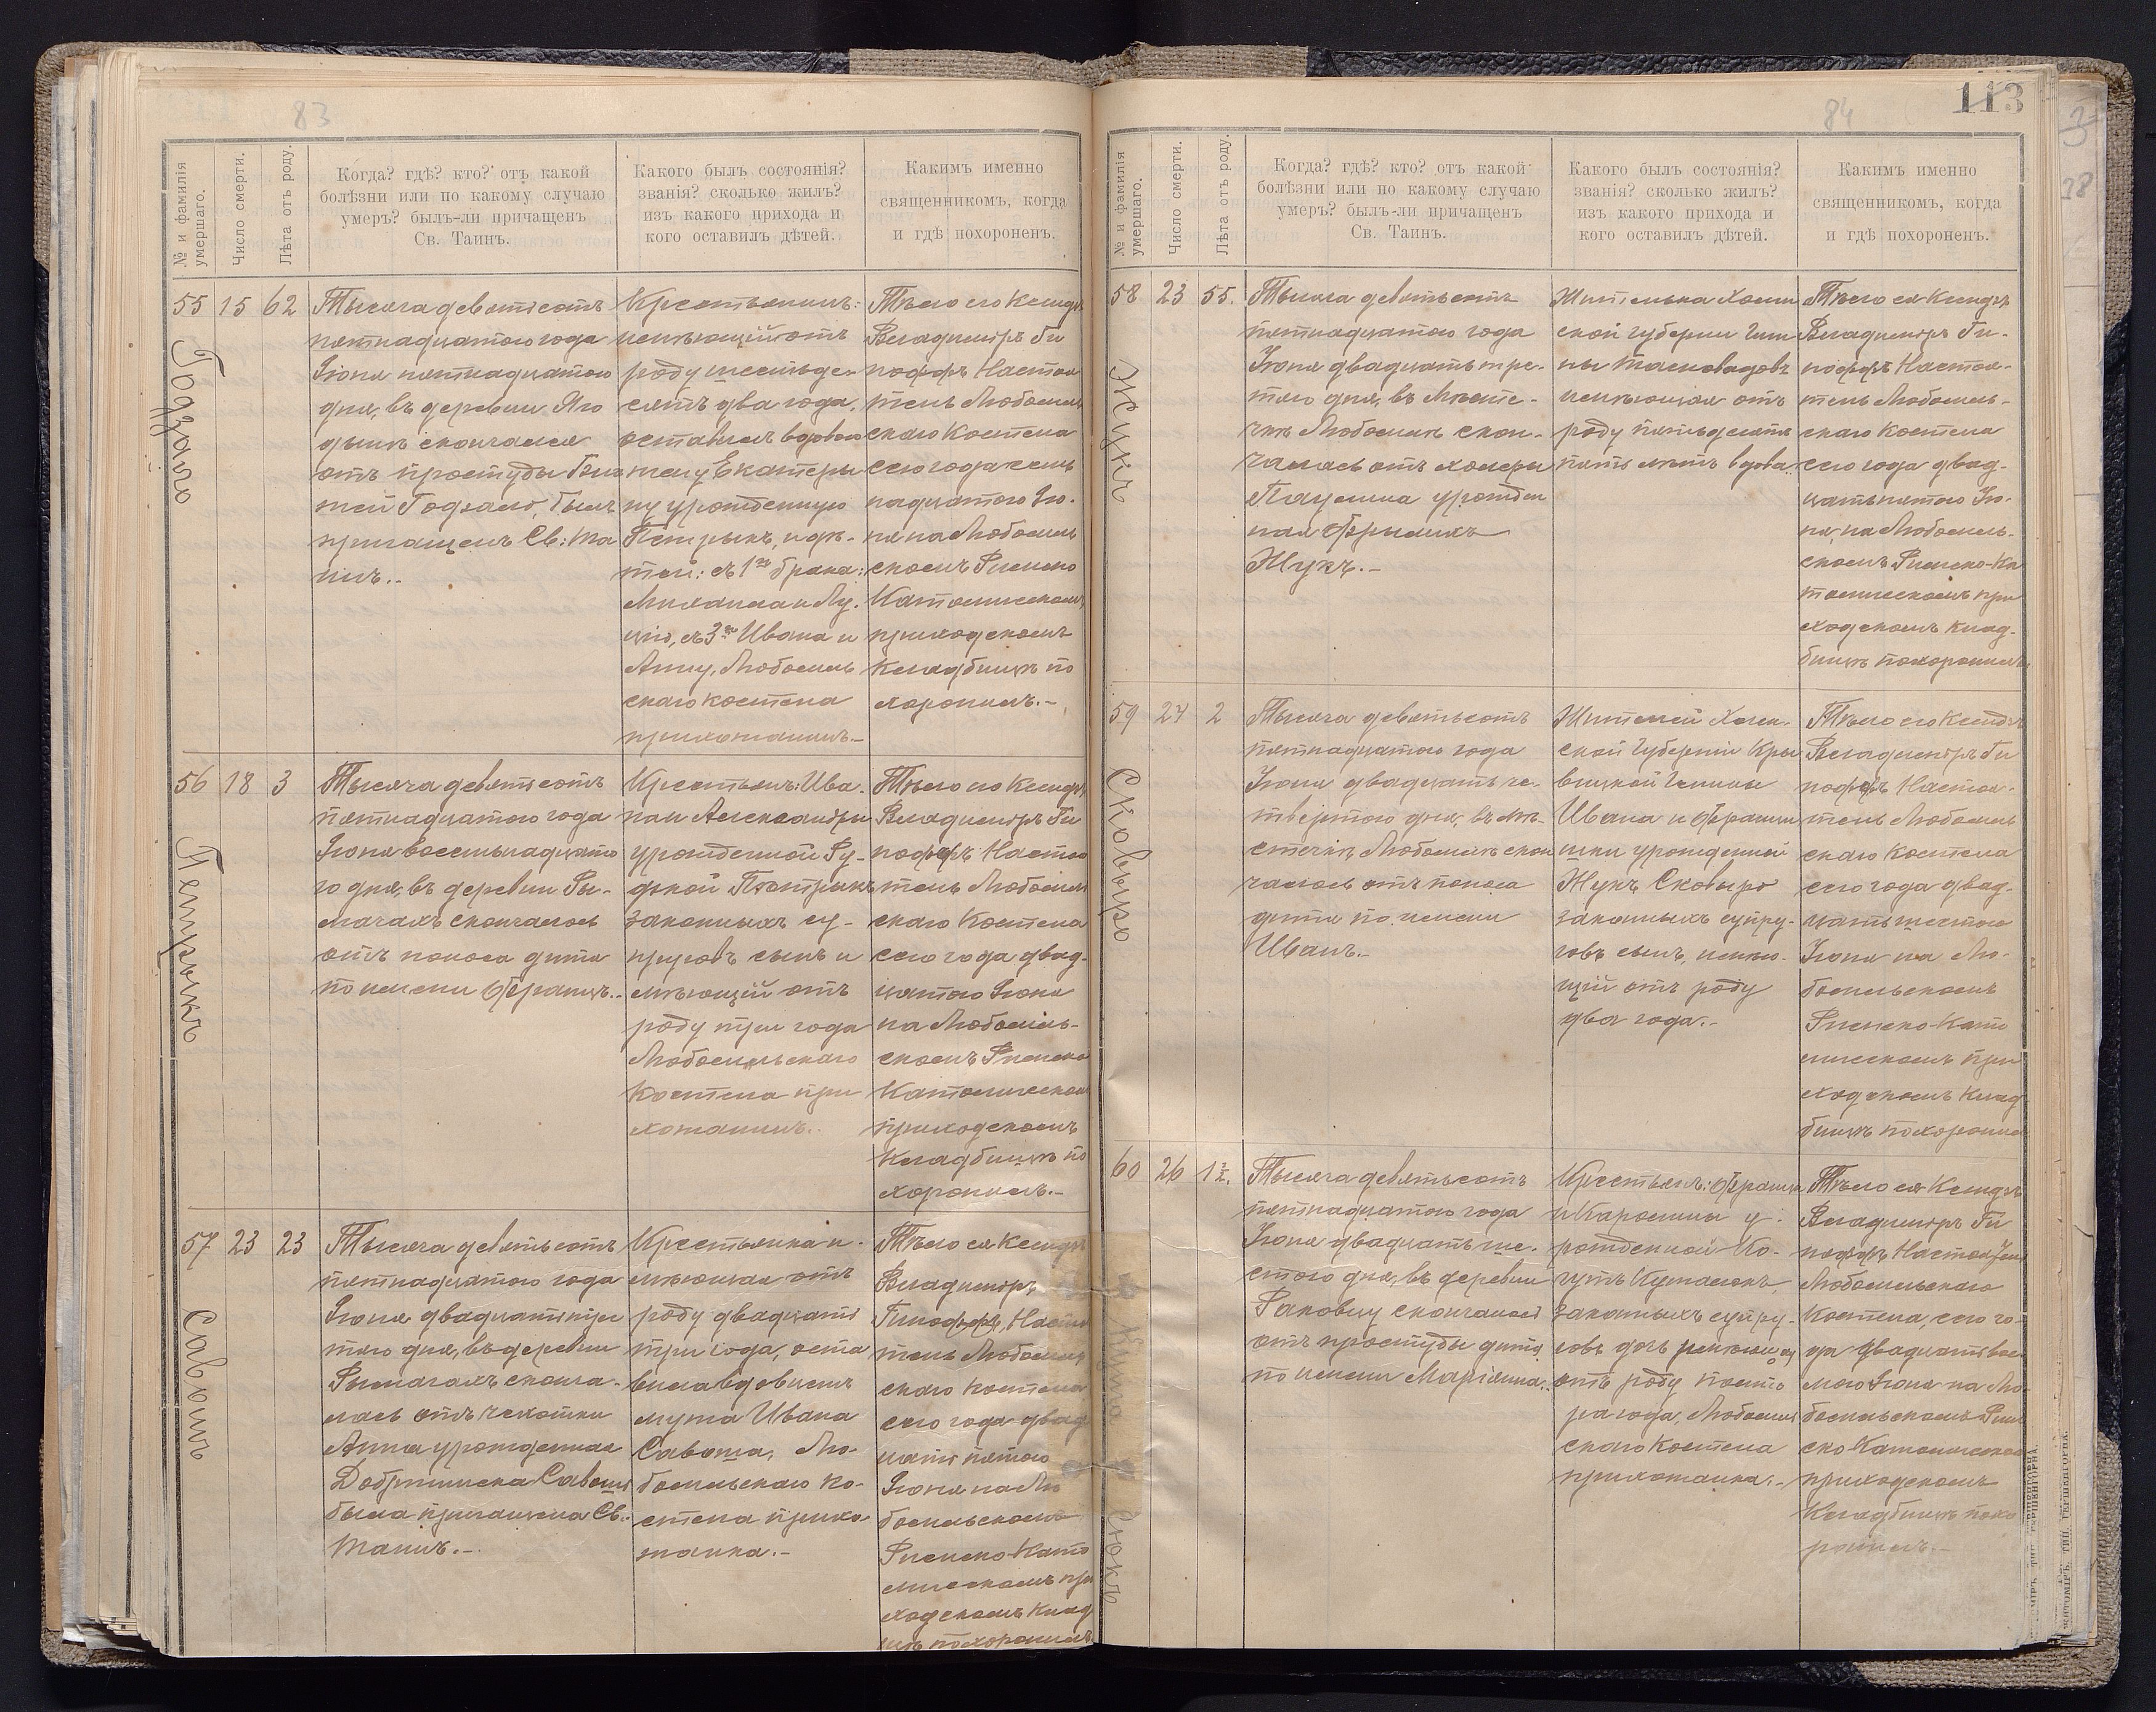 83
№ и фамилія умершаго.
Число смерти.
Лѣта отъ роду.
Когда? гдѣ? кто? отъ какой
болѣзни или по какому случаю
умеръ? былъ-ли причащенъ
Св. Таинъ.
Какого былъ состоянія?
званія? сколько жилъ?
изъ какого прихода и
кого оставилъ дѣтей.
Какимъ именно
священникомъ, когда
и гдѣ похороненъ.
55 15 62
Годзало
Тысяча девятьсотъ
пятнадцатого года
Іюня пятнадцатого
дня, въ деревни Яго
дынѣ скончался
отъ простуды
Годзало, былъ
причащенъ Св: Та
инъ.-
Крестьянинъ:
имѣющій отъ
роду шестьде-
сятъ два года,
оставилъ вдовою
жену Екатери
ну урожденную
Петрыкъ, и дѣ-
тей: съ 1го брака:
Михаила и Лу.
цію, съ 3го Ивана и
Анну, Любомль
скаго костела
прихожанинъ.-
Тѣло его Ксендзъ
Владиміръ Ги
пофръ Настоя
тель Любомль
скаго Костела
сего года семь
надцатого Ію.
ня на Любомль
скомъ Римско
Католическомъ
приходскомъ
Кладбищѣ по
хоронилъ.-
56 18 3
Петрыкъ
Тысяча девятьсотъ
пятнадцатого года
Іюня восемьнадцато
го дня, въ деревни Ры-
мачахъ скончалось
отъ поноса дитя
по имени Францъ.-
Крестьянъ: Ива.
на и Александры
урожденной Ру-
дской Петрыкъ
законныхъ су-
пруговъ сынъ и
мѣющій отъ
роду три года
Любомльскаго
Костела при
хожанинъ.-
Тѣло его Ксендзъ
Владиміръ Ги
пофръ Настоя
тель Любомль
скаго Костела
сего года двад-
цатого Іюня
на Любомль-
скомъ Римско
Католическомъ
приходскомъ
Кладбищѣ по
хоронилъ.-
57 23 23
Савошъ
Тысяча девятьсотъ
пятнадцатого года
Іюня двадцать тре
тяго дня, въ деревни
Рымачахъ сконча-
лась отъ чахотки
Анна урожденная
Савошъ
была причащена Св.
Таинъ.-
Крестьянка и-
мѣющая отъ
роду двадцать
три года, оста
вила вдовцемъ
мужа Ивана
Савоша, Лю-
бомльскаго ко-
стела прихо-
жанка.-
Тѣло ея Ксендзъ
Владиміръ
Гипофръ, Настоя
тель Любомль
скаго костела
сего года двад
цать пятого
Іюня на Лю
бомльскомъ
Римско-Като
лическомъ при
ходскомъ Клад
щѣ похоронилъ
84
113
№ и фамилія умершаго.
Число смерти.
Лѣта отъ роду.
Когда? гдѣ? кто? отъ какой
болѣзни или по какому случаю
умеръ? былъ-ли причащенъ
Св. Таинъ.
Какого былъ состоянія?
званія? сколько жилъ?
изъ какого прихода и
кого оставилъ дѣтей.
Какимъ именно
священникомъ, когда
и гдѣ похороненъ.
58 23 55.
Жукъ
Тысяча девятьсотъ
пятнадцатого года
Іюня двадцать тре-
тяго дня, въ Мѣсте-
чкѣ Любомлѣ скон-
чалась отъ холеры
Паулина урожден
ная
Жукъ.-
Жителька Холм
ской губерніи Гми
ны
имѣющая отъ
роду пятьдесятъ
пять лѣтъ вдова.
Тѣло ея Ксендзъ
Владиміръ Ги-
пофръ Настоя-
тель Любомль-
скаго Костела
сего года двад-
цать пятого Ію-
ня, на Любомль-
скомъ Римско-Ка
толическомъ при
ходскомъ клад-
бищѣ похоронилъ
59 24 2
Сковыро
Тысяча девятьсотъ
пятнадцатого года
Іюня двадцать че-
твертого дня, въ мѣ-
стечкѣ Любомлѣ скон
чалось отъ поноса
дитя по имени
Иванъ.-
Жителей Холм-
ской Губерніи Кры
Гмины
Ивана и Францы
шки урожденной
Жукъ Сковыро
законныхъ супру-
говъ сынъ, имѣю-
щій отъ роду
два года.-
Тѣло его Ксендзъ
Владиміръ Ги
пофръ Настоя-
тель Любомль
скаго Костела
сего года двад-
цать шестого
Іюня на Лю-
бомльскомъ
Римско-Като
лическомъ при
ходскомъ Клад
бищѣ похоронилъ
60 26 1½.
Тысяча девятьсотъ
пятнадцатого года
Іюня двадцать ше-
стого дня, въ деревни
Раковцу скончалось
отъ простуды дитя
по имени Маріанна.
Крестьянъ: Франца
и Каролины у-
рожденной Ко-
законныхъ супру-
говъ дочь имѣющая
отъ роду полто
ра года, Любомль
скаго костела
прихожанка.-
Тѣло ея Ксендзъ
Владиміръ Ги
пофръ Настоятель
Любомльскаго
Костела, сего го-
да двадцать вось
мого Іюня на Лю-
бомльскомъ Рим
ско Католическомъ
приходскомъ
Кладбищѣ похо
ронилъ.-